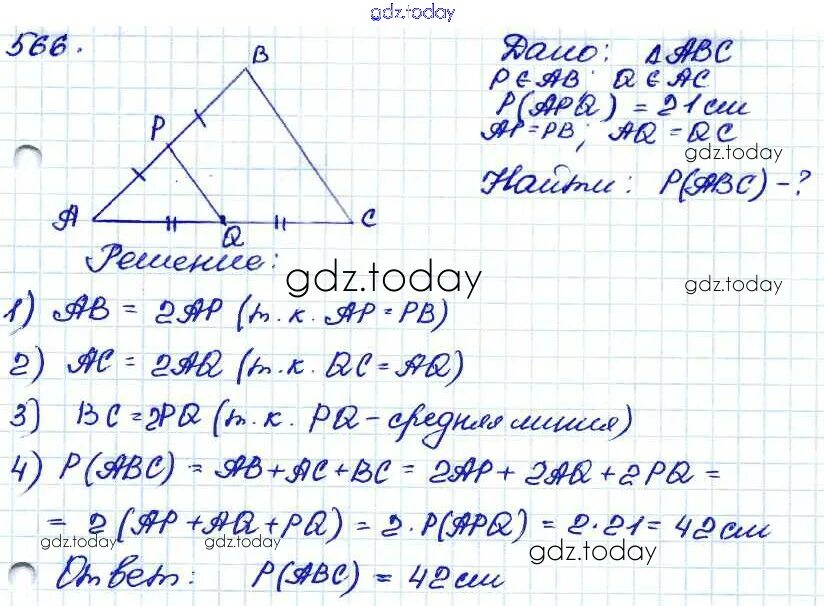 gdz.today
566.
B
P
A
Q
C
Дано: △ABC
P∈AB Q∈AC
P(APQ) = 21 см
AP=PB; AQ=QC
gdz.today
Найти: P(ABC)-?
Решение:
gdz.today
gdz.today
1) AB = 2AP (т.к. AP=PB)
2) AC = 2AQ (т.к. QC=AQ)
3) BC=2PQ (т.к. PQ-средняя линия)
4) P(ABC) = AB+AC+BC = 2AP+2AQ+2PQ =
= 2(AP+AQ+PQ) = 2·P(APQ) = 2·21=42см
gdz.today
gdz.today
gdz.today
Ответ: P(ABC) = 42см